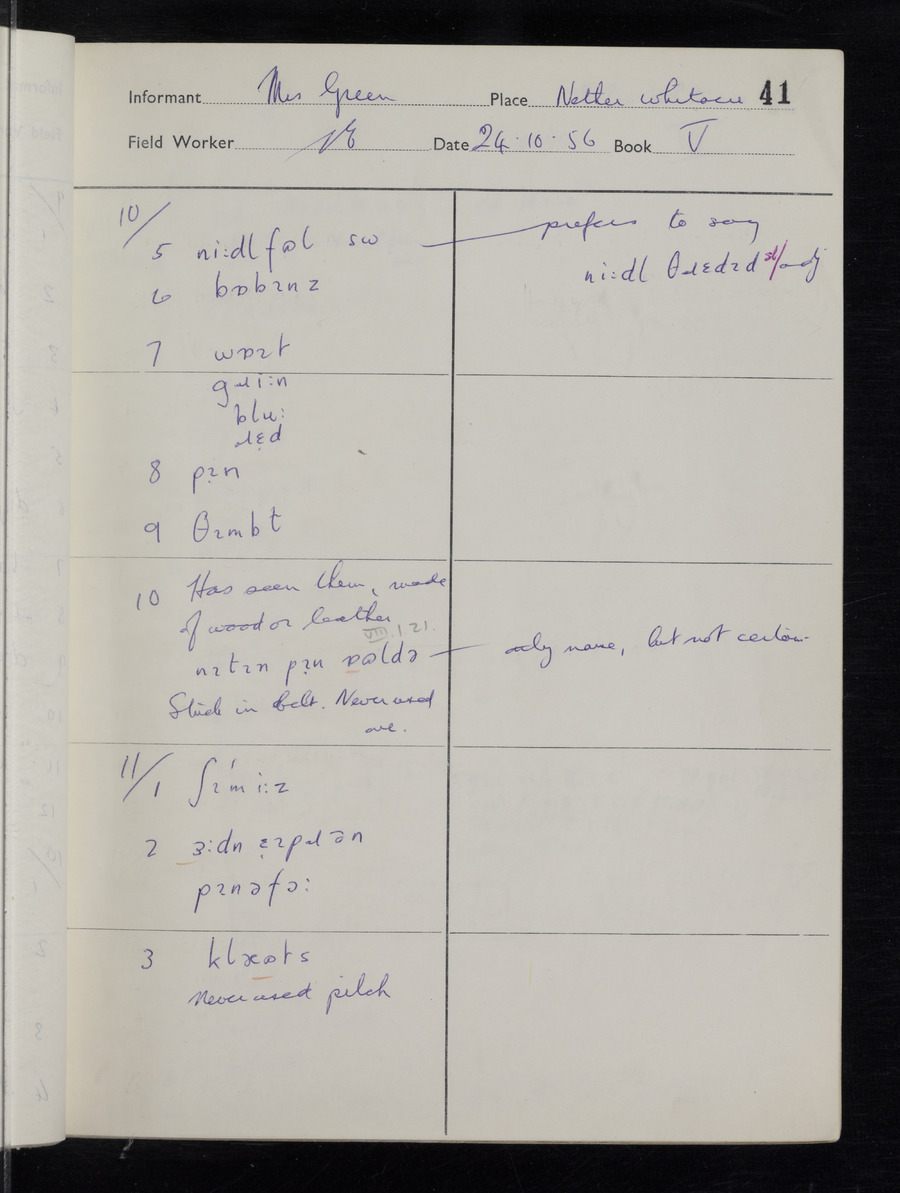 Informant Mrs Green Place Nether Whitacre 41
Field Worker Date 24.10.56 Book V
10/
5 ni:dl fʊl sω prefers to say
ni:dl θɹɛdɪd st/adj
6 bɒbɪnz
7 wɒɪt
gɹi:n
blu:
ɹɛd
8 pɪn
9 θɪmbt
10 Has seen them, made
of wood or leather
VIII.1 21.
nɪtɪn pɪn ɒʊldə only name, but not certain
Stuck in belt. Never used
one.
11/1 ʃɪˈmi:z
2 ɜ:dn ɛɪpɹən
pɪnəfɔ:
3 klæʊts
Never used pilch